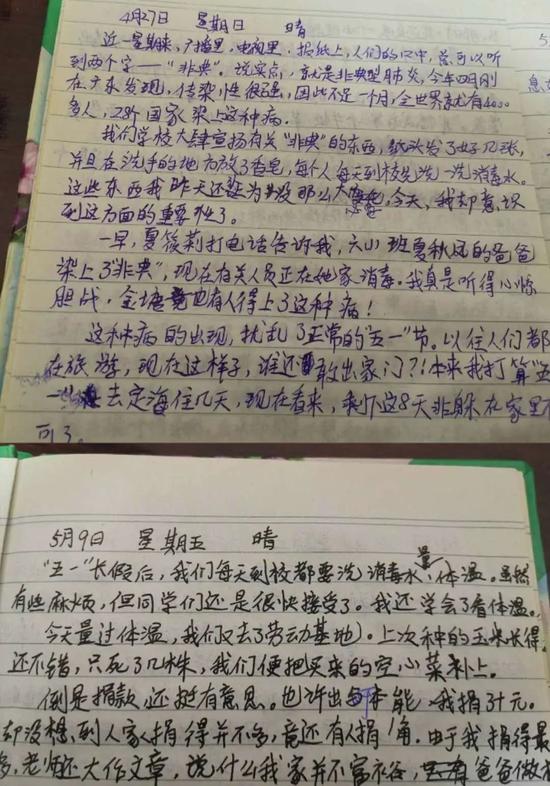 4月27日 星期日 晴
近一星期来，广播里，电视里，报纸上，人们的口中，总可以听
到两个字——“非典”。说实点，就是非典型肺炎，今年四月刚
在广东发现，传染性很强，因此不足一个月，全世界就有4000
多人，28个国家染上这种病。
我们学校大肆宣扬有关“非典”的东西，纸头发了好几张，
并且在洗手的地方放了香皂，每个人每天到校先洗一洗消毒水。
这些东西我昨天还认为没那么大，今天，我却意识
到这方面的重要性了。
一早，夏筱莉打电话告诉我，六山班夏秋凤的爸爸
染上了“非典”，现在有关人员正在她家消毒。我真是听得心惊
胆战，金塘竟也有人得上了这种病！
这种病的出现，扰乱了正常的“五一”节。以往人们都
在旅游，现在这样子，谁还敢出家门？！本来我打算“五
一”去定海住几天，现在看来，剩下这8天非躲在家里不
可了。
5月9日 星期五 晴
“五一”长假后，我们每天到校都要洗消毒水，量体温。虽然
有些麻烦，但同学们还是很快接受了。我还学会了看体温。
今天量过体温，我们又去了劳动基地）。上次种的玉米长得
还不错，只死了几株，我们便把买来的空心菜补上。
倒是捐款，还挺有意思。也许出于本能，我捐了31元。
却没想到人家捐得并不多，竟还有人捐1角。由于我捐得最
多，老师还大作文章，说什么我家并不富裕，爸爸做